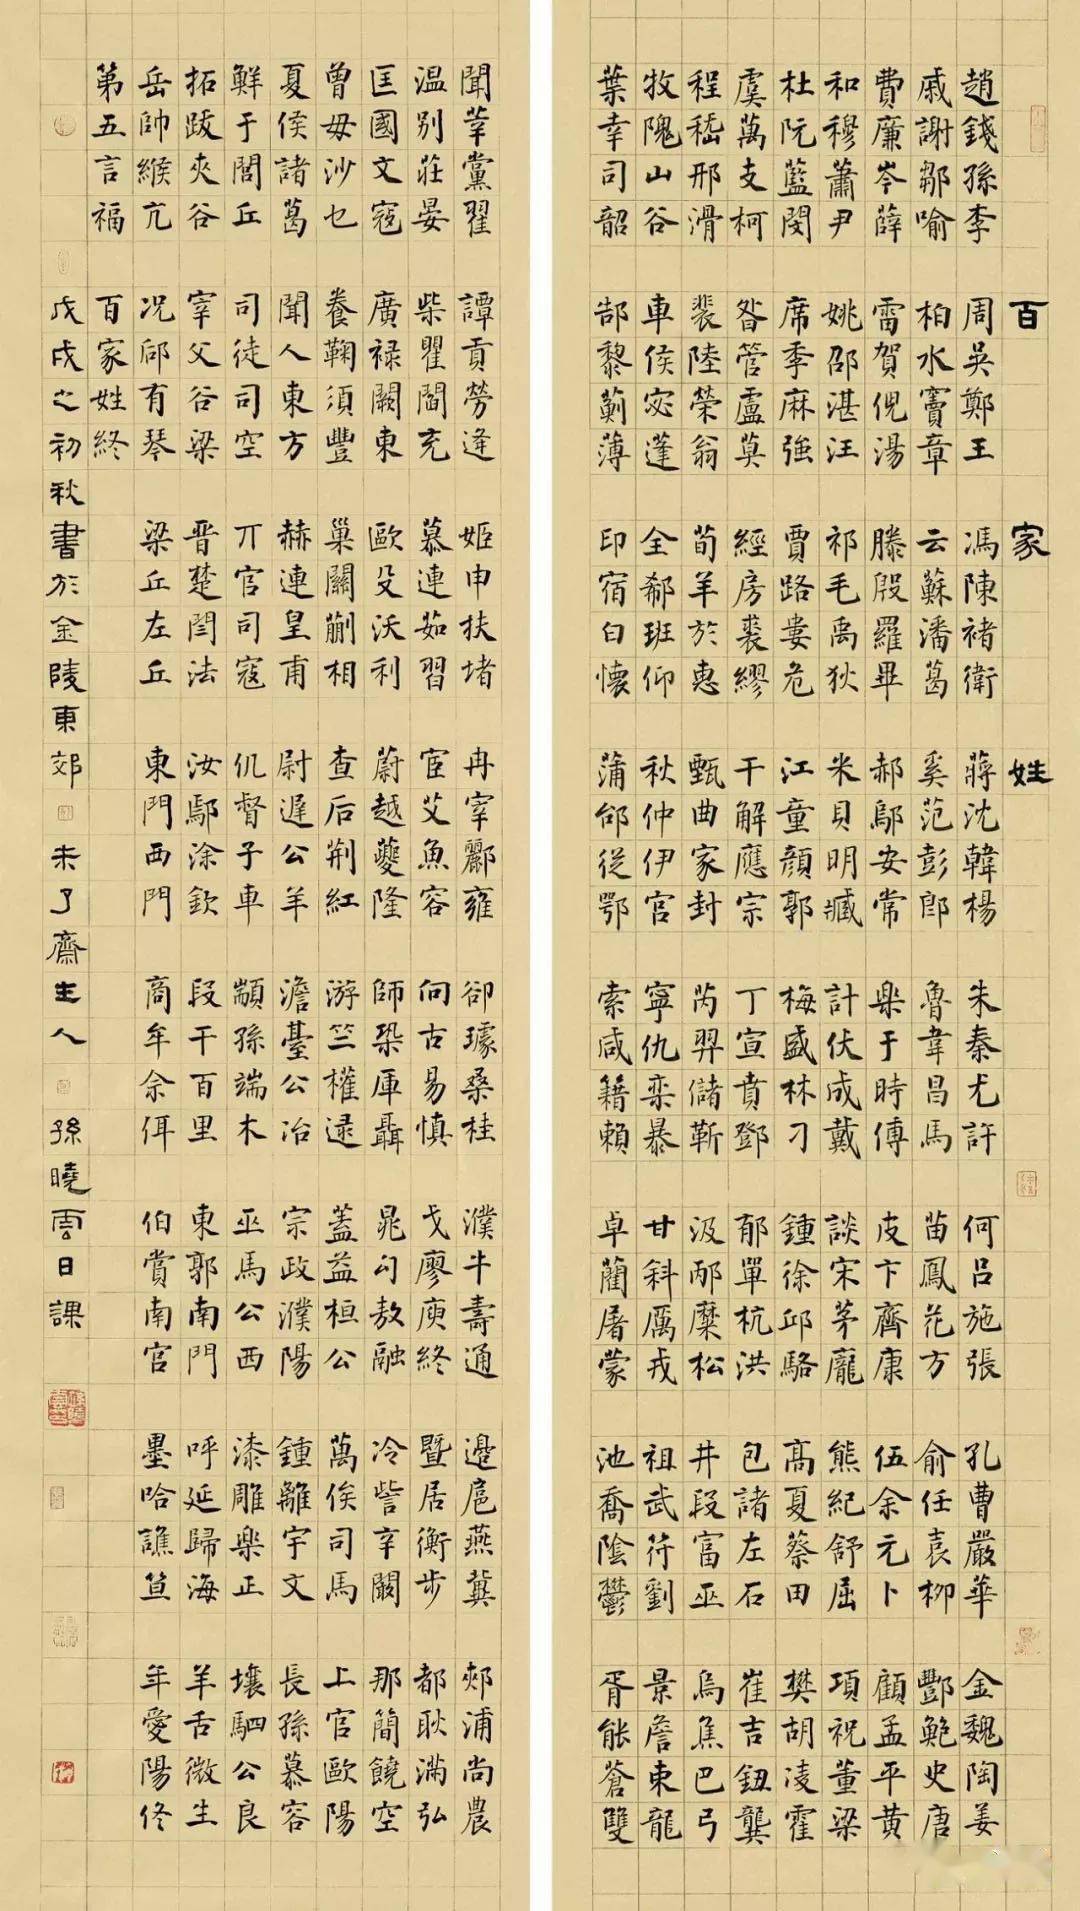 百家姓
趙錢孫李 周吳鄭王 馮陳褚衛 蔣沈韓楊 朱秦尤許 何呂施張 孔曹嚴華 金魏陶姜
戚謝鄒喻 柏水竇章 云蘇潘葛 奚范彭郎 魯韋昌馬 苗鳳花方 俞任袁柳 酆鮑史唐
費廉岑薛 雷賀倪湯 滕殷羅畢 郝鄔安常 樂于時傅 皮卞齊康 伍余元卜 顧孟平黃
和穆蕭尹 姚邵湛汪 祁毛禹狄 米貝明臧 計伏成戴 談宋茅龐 熊紀舒屈 項祝董梁
杜阮藍閔 席季麻強 賈路婁危 江童顏郭 梅盛林刁 鍾徐邱駱 高夏蔡田 樊胡凌霍
虞萬支柯 昝管盧莫 經房裘繆 干解應宗 丁宣賁鄧 郁單杭洪 包諸左石 崔吉鈕龔
程嵇邢滑 裴陸榮翁 荀羊於惠 甄曲家封 芮羿儲靳 汲邴糜松 井段富巫 烏焦巴弓
牧隗山谷 車侯宓蓬 全郗班仰 秋仲伊宮 寧仇欒暴 甘斜厲戎 祖武符劉 景詹束龍
葉幸司韶 郜黎薊薄 印宿白懷 蒲邰從鄂 索咸籍賴 卓藺屠蒙 池喬陰鬱 胥能蒼雙
聞莘黨翟 譚貢勞逄 姬申扶堵 冉宰酈雍 卻璩桑桂 濮牛壽通 邊扈燕冀 郟浦尚農
温別莊晏 柴瞿閻充 慕連茹習 宦艾魚容 向古易慎 戈廖庾終 暨居衡步 都耿滿弘
匡國文寇 廣祿闕東 歐殳沃利 蔚越夔隆 師鞏厙聶 晁勾敖融 冷訾辛闞 那簡饒空
曾毋沙乜 養鞠須豐 巢關蒯相 查后荆紅 游竺權逯 蓋益桓公 萬俟司馬 上官歐陽
夏侯諸葛 聞人東方 赫連皇甫 尉遲公羊 澹臺公冶 宗政濮陽 鍾離宇文 長孫慕容
鮮于閭丘 司徒司空 丌官司寇 仉督子車 顓孫端木 巫馬公西 漆雕樂正 壤駟公良
拓跋夾谷 宰父谷梁 晋楚閆法 汝鄢涂欽 段干百里 東郭南門 呼延歸海 羊舌微生
岳帥緱亢 况郈有琴 梁丘左丘 東門西門 商牟佘佴 伯賞南宮 墨哈譙笪 年愛陽佟
第五言福 百家姓終
戊戌之初秋書於金陵東郊 未了齋主人 孫曉雲日課